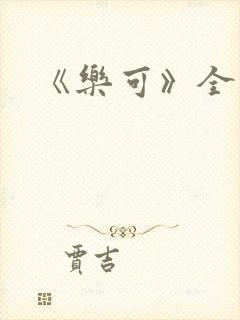 《樂可》全
賈吉